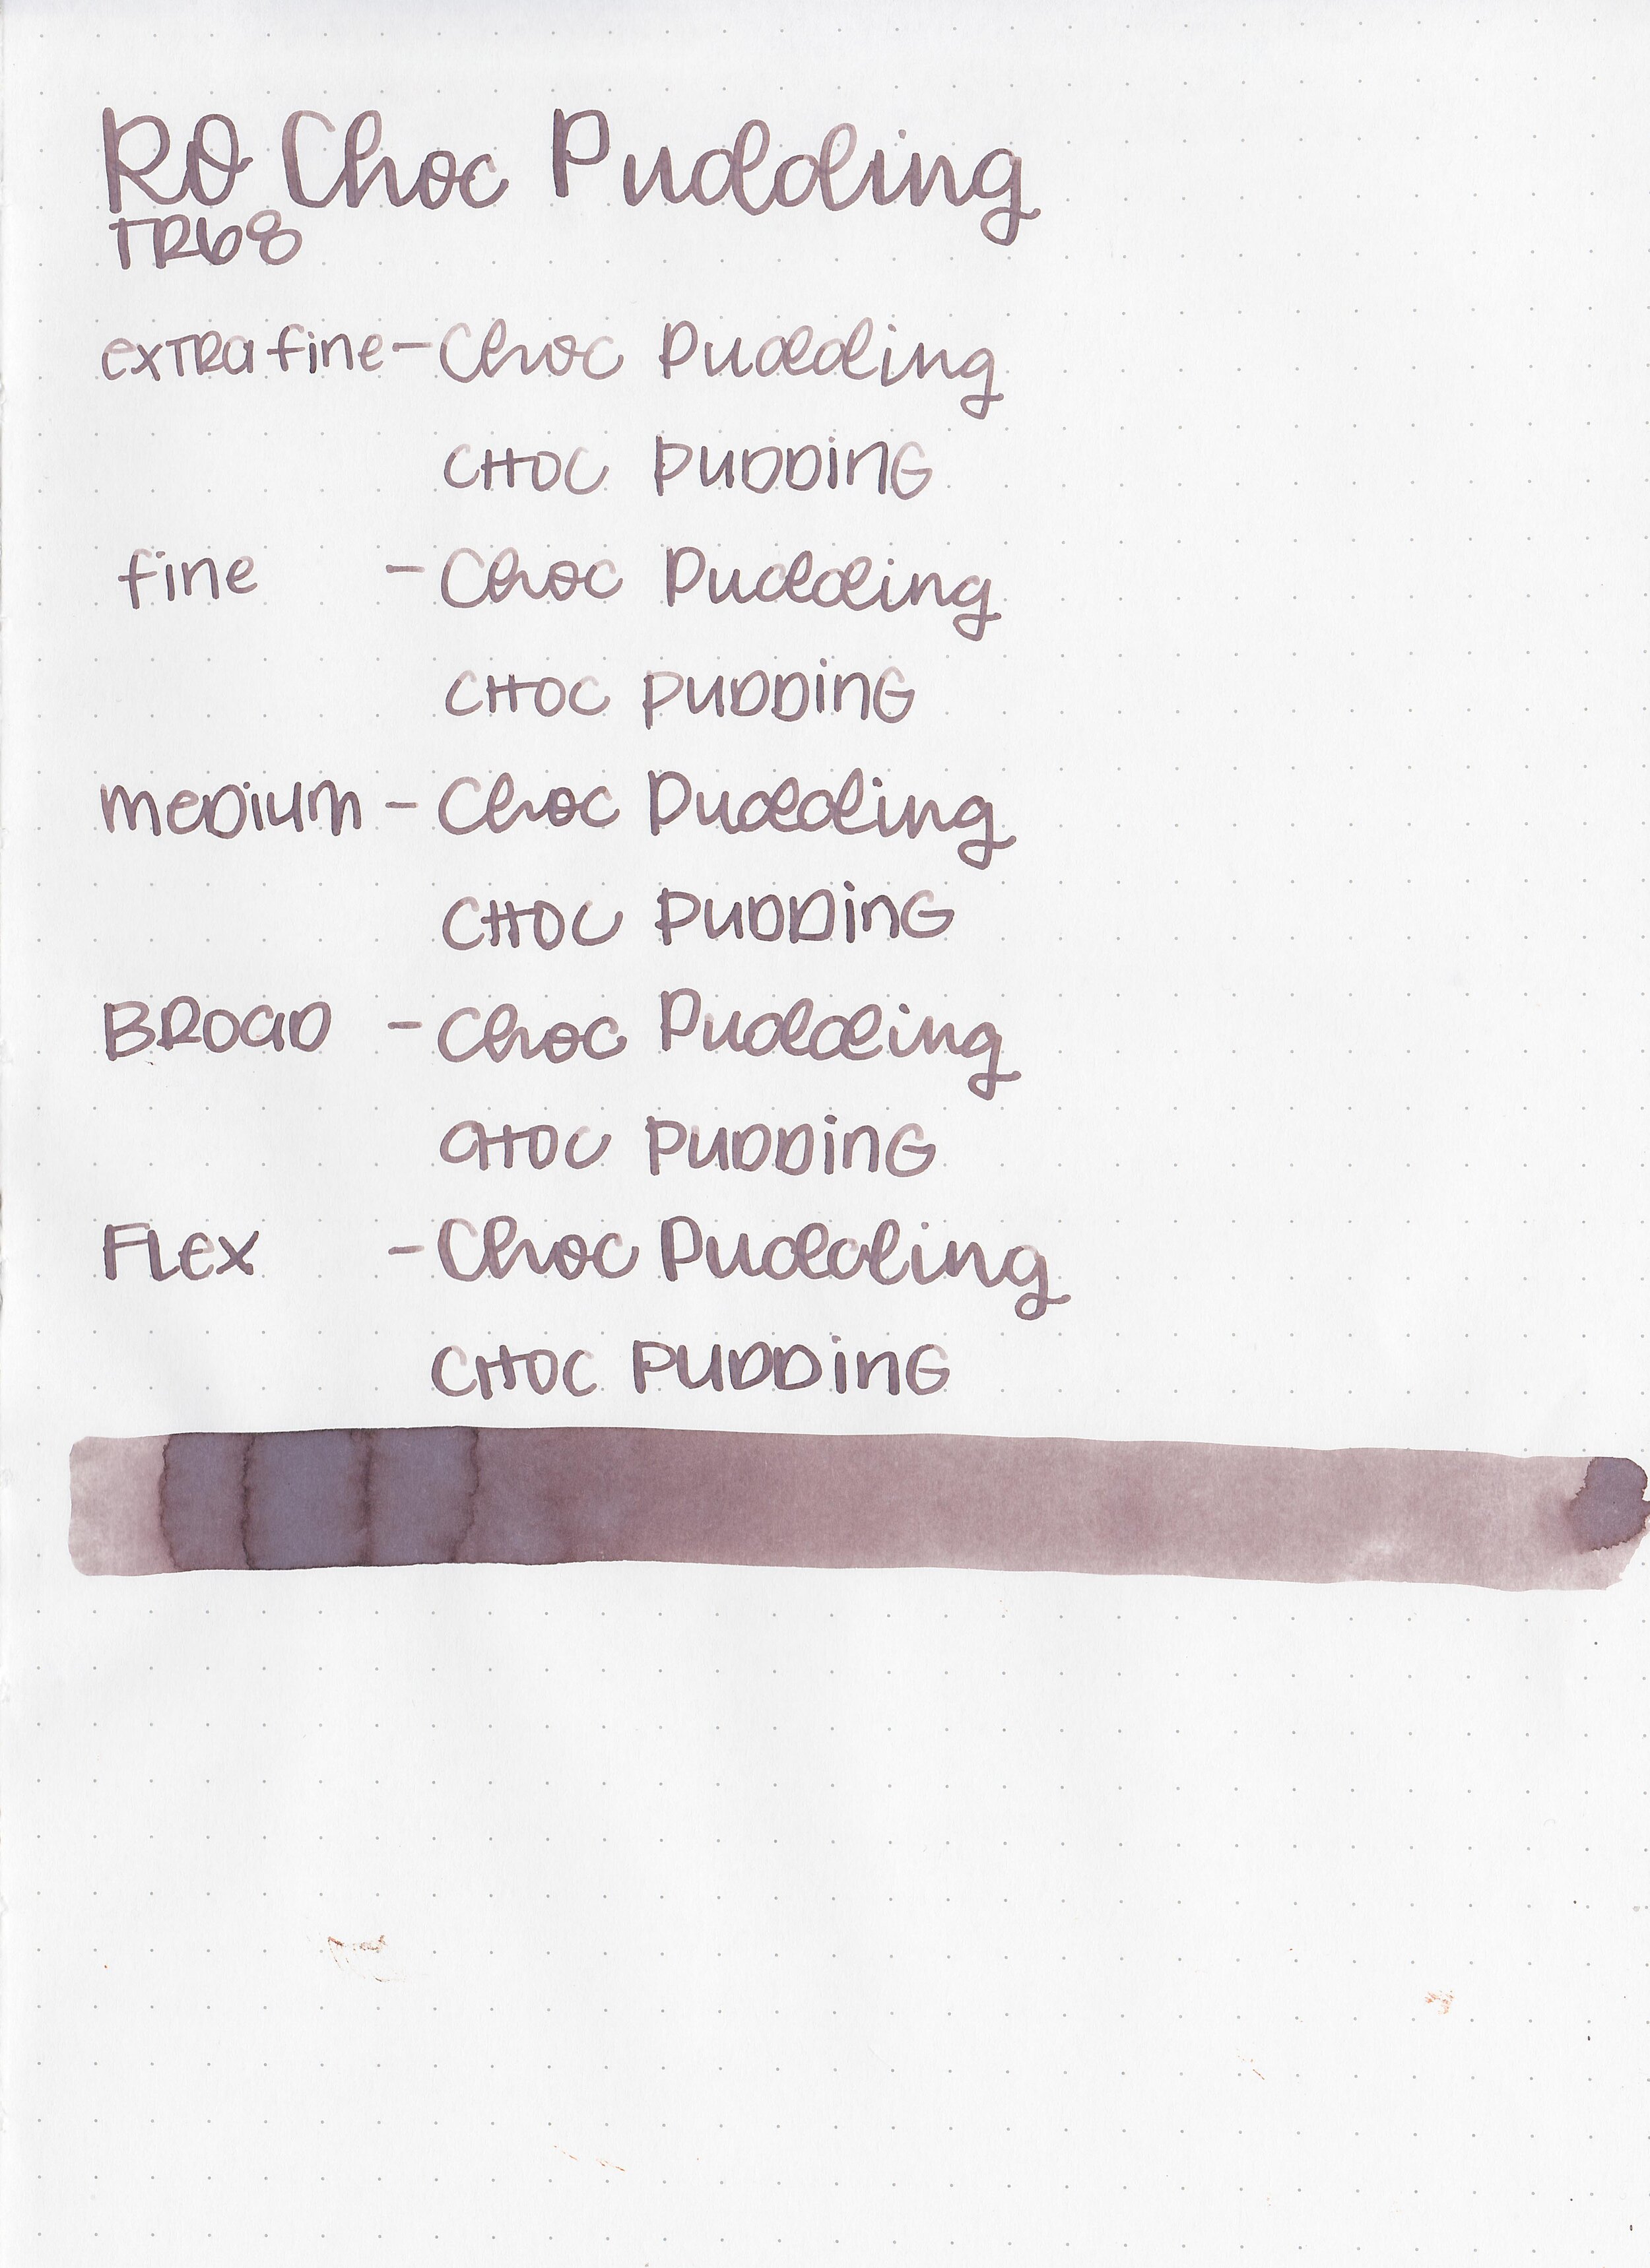 RO Choc Pudding
TR68
exTRa fine - Choc Pudding
CHOC PUDDinG
fine - Choc Pudding
CHOC PUDDinG
meDium - Choc Pudding
CHOC PUDDinG
BROaD - Choc Pudding
CHOC PUDDinG
FLex - Choc Pudding
CHOC PUDDinG